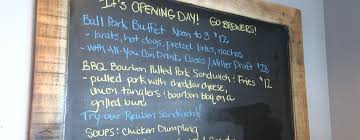 It's OPENING DAY! GO BREWERS!
Ball Park Buffet Noon to 3 $12
- brats, hot dogs, pretzel bites, nachos
- with All-You-Can Drink Cokes / Miller Draft $28
BBQ Bourbon Pulled Pork Sandwich: Fries $12
- pulled pork with cheddar cheese,
onion tanglers : bourbon bbq on a
grilled buns
Try our Reuben Sandwich!
SOUPS: CHICKEN DUMPLING